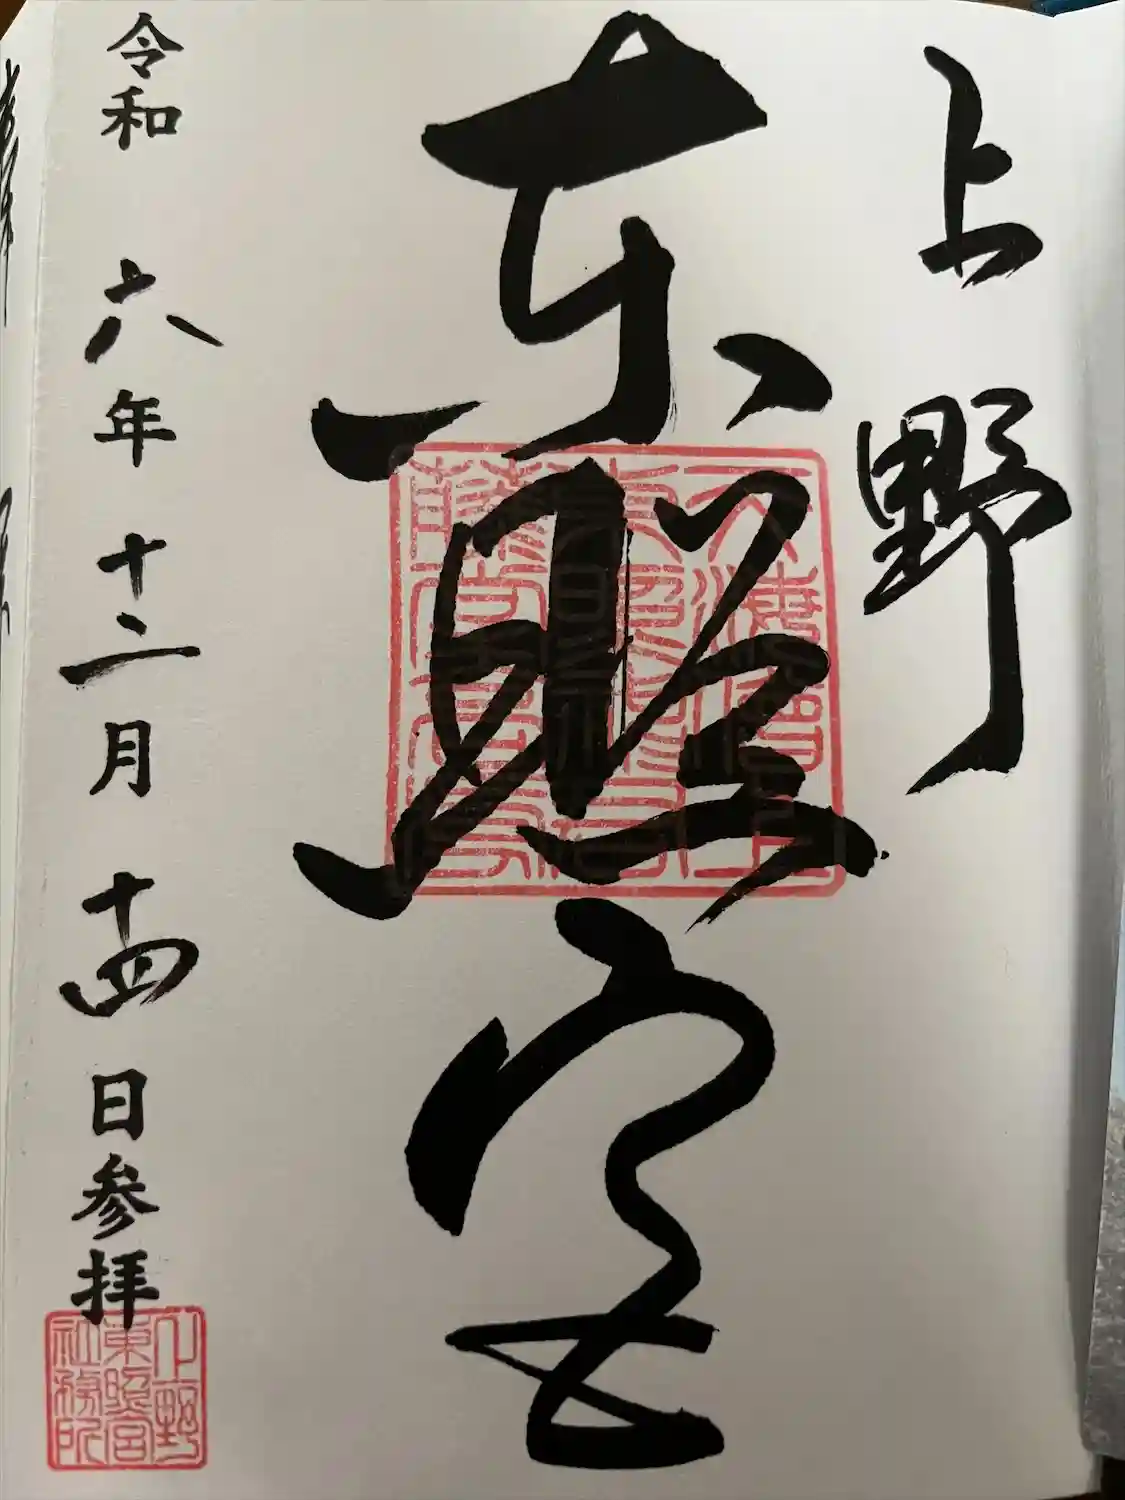 上野
東照宮
令和六年十二月十四日参拝
上野
東照宮
社務所